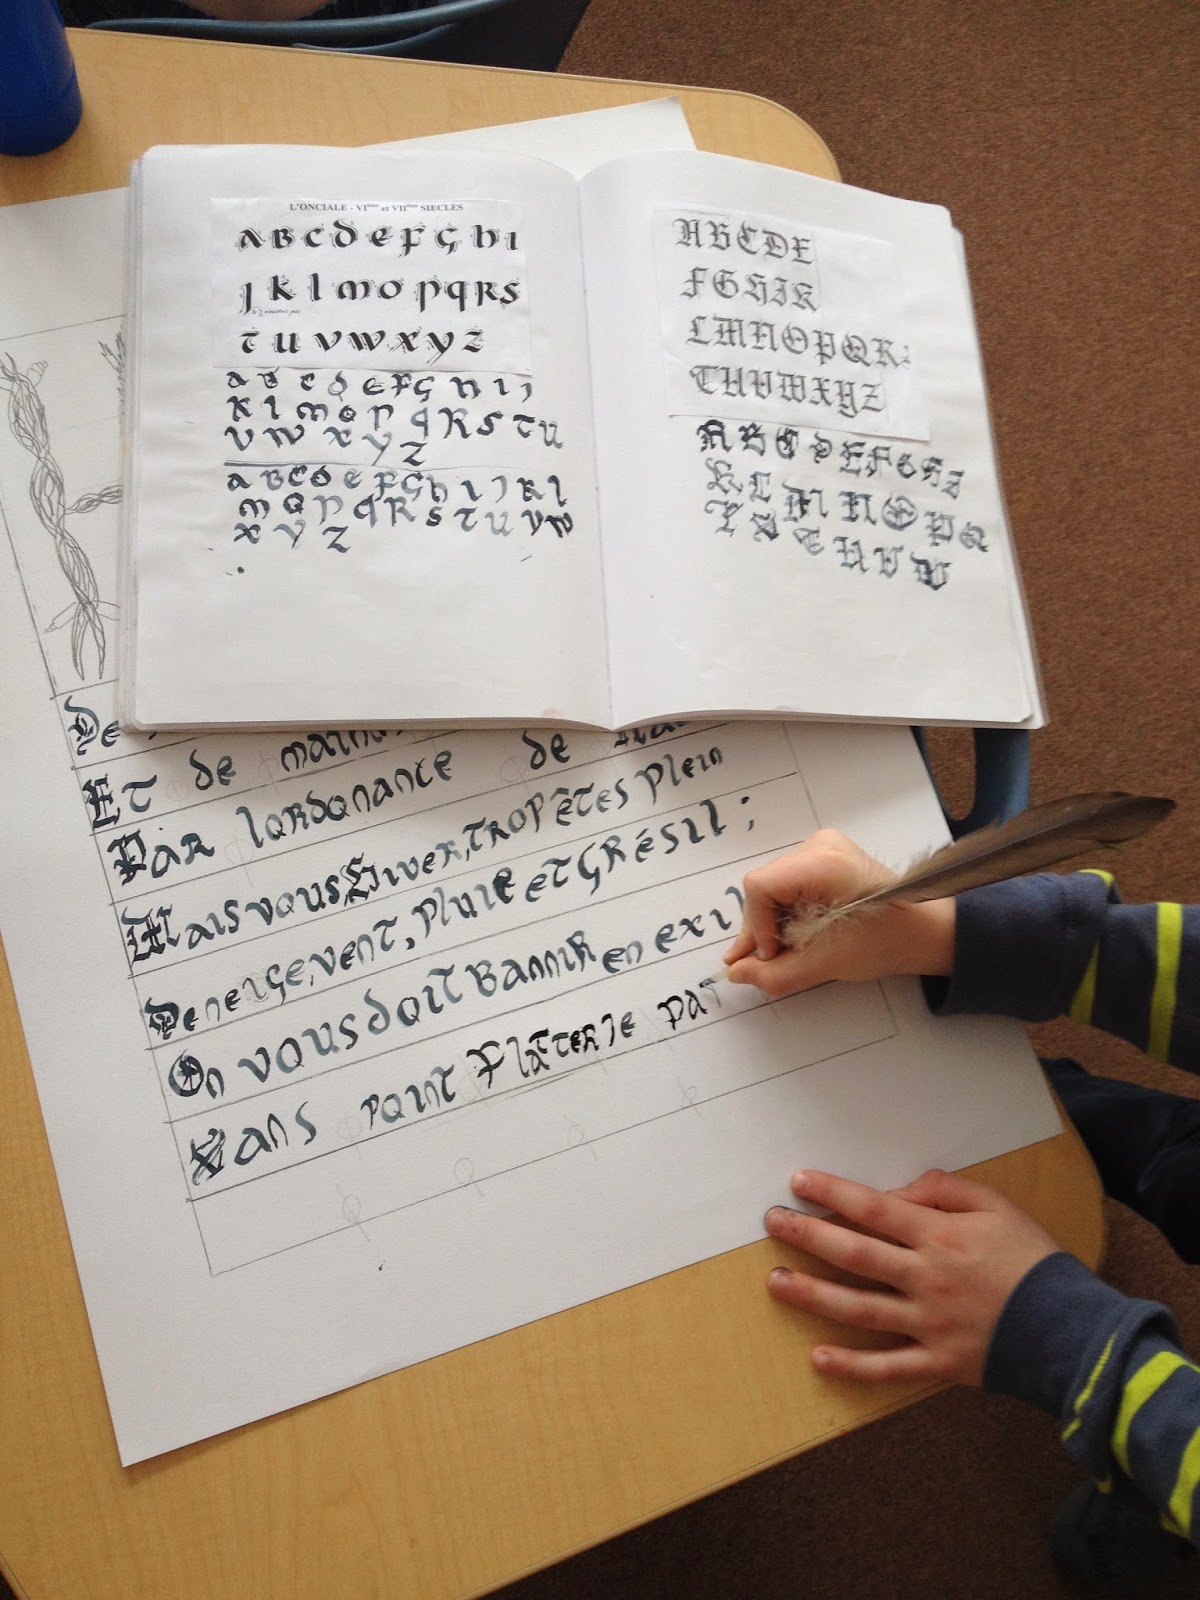 L'ONCIALE - VIème et VIIème SIECLES
a B C d e f g h i
j k l m o p q R s
t u v w x y z
a B C d e f g h i j
k l m o p q R s t u
v w x y z
a B C d e f g h i j k l
m o p q R s t u v w
x y z
A B C D E
F G H I K
L M N O P Q R
T U V W X Y Z
A B C D E F G H I
K L M N O P Q
T U V W
De
Et de maint
Par lordonance de
Mais vous Yver, trop êtes plein
De neige, vent, pluie et Grésil ;
On vous doit Bannir en exil
Sans point Flâterie par